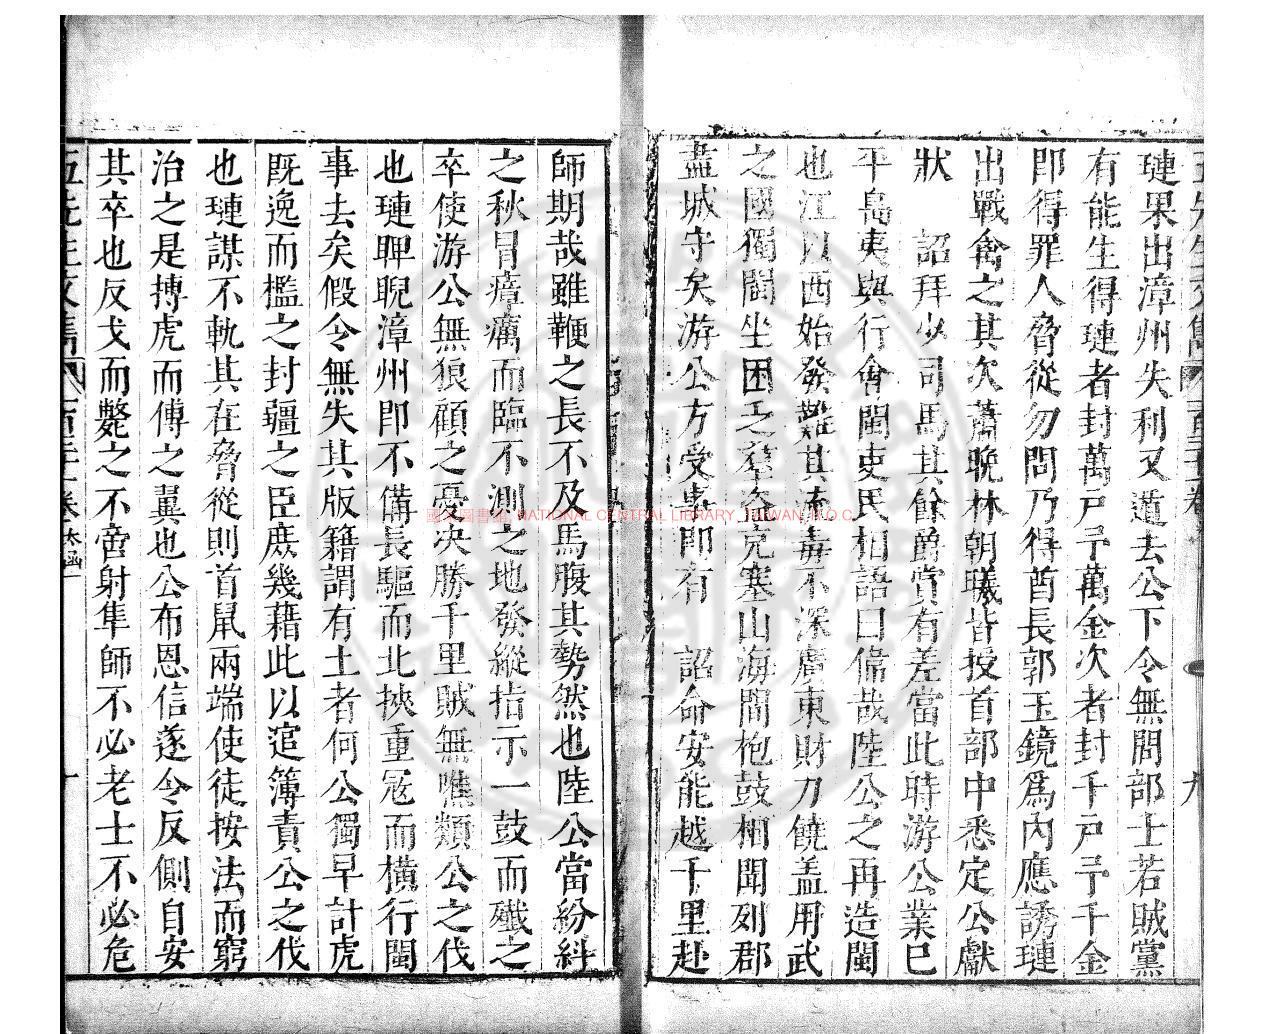 璉果出漳州失利又遁去公下令無問部士若賊黨
有能生得璉者封萬戶予萬金次者封千戶予千金
即得罪人脅從勿問乃得酋長郭玉鏡爲內應誘璉
出戰禽之其次蕭晚林朝曦皆授首部中悉定公獻
狀　詔拜少司馬其餘爵賞有差當此時游公業已
平島夷與行會閩吏民相語曰偉哉陸公之再造閩
也江以西始發難其流毒不深廣東財力饒盖用武
之國獨閩坐困乏羣盗克塞山海間枹鼓相聞列郡
盡城守矣游公方受事即有　詔命安能越千里赴
師期哉雖鞭之長不及馬腹其勢然也陸公當紛糾
之秋冒瘴癘而臨不測之地發縱指示一鼓而殱之
卒使游公無狼顧之憂决勝千里賊無噍類公之伐
也璉睥睨漳州即不備長驅而北挾重冦而橫行閩
事去矣假令無失其版籍謂有土者何公獨早計虎
既逸而檻之封疆之臣庶幾藉此以逭簿責公之伐
也璉謀不軌其在脅從則首鼠兩端使徒按法而窮
治之是搏虎而傅之翼也公布恩信遂令反側自安
其卒也反戈而斃之不啻射隼師不必老士不必危
國家圖書館 NATIONAL CENTRAL LIBRARY, TAIWAN, R.O.C.